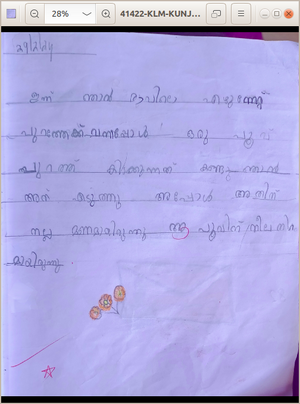 28%
41422-KLM-KUNJ...
29/2/24
ഇന്ന് ഞാൻ രാവിലെ എഴുന്നേറ്റ്
പുറത്തേക്ക് വന്നപ്പോൾ ഒരു പൂവ്
പുറത്ത് കിടക്കുന്നത് കണ്ടു ഞാൻ
അത് എടുത്തു അപ്പോൾ അതിന്
നല്ല മണമായിരുന്നു ആ പൂവിന് നീല നിറ
മായിരുന്നു.